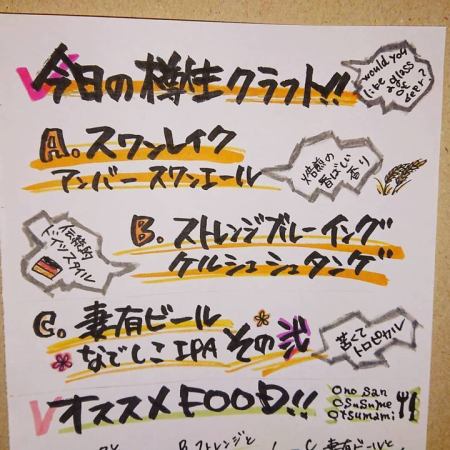 今日の樽生クラフト!!
would you
like
a glass
of
beer?
A. スワンレイク
アンバースワンエール
焙煎の
香ばしい
香り
B. ストレンジブルーイング
ケルシュシュタンゲ
伝統的
ドイツスタイル
C. 妻有ビール
なでしこIPA その弐
苦くて
トロピカル
オススメFOOD!!
Ono san
osusume
otsumami
B.ストレンジと
C.妻有ビールと